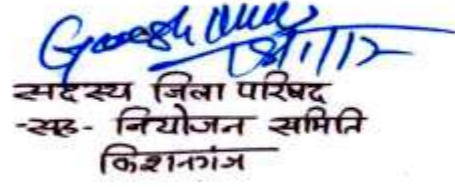 18/1/12
सदस्य जिला परिषद
-सह- नियोजन समिति
किशनगंज